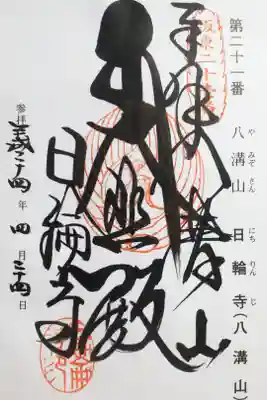 第二十一番 八溝山 日輪寺(八溝山)
やみぞさん にちりんじ
坂東二十一番
奉拝 八溝山
大悲殿
日輪寺
参拝 平成二十四年 四月 二十四日